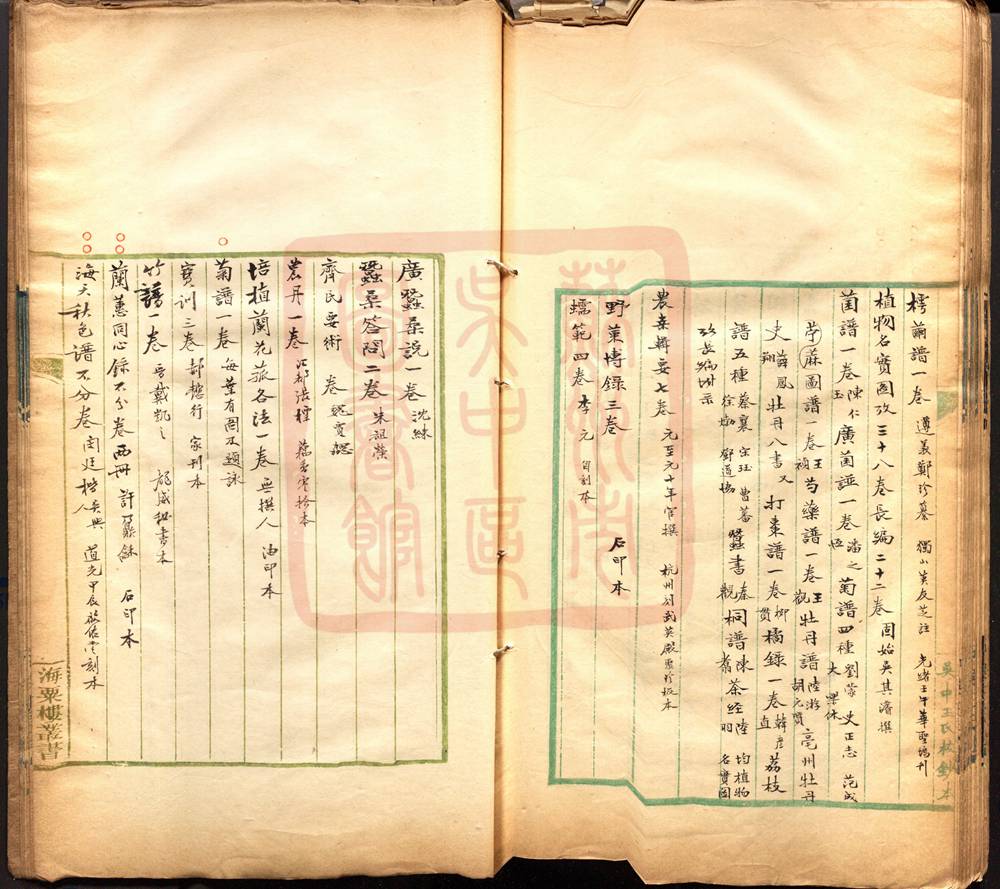 樗繭譜一卷 遵義鄭珍纂 獨山莫友芝注 光緒壬午華聖塢刊
植物名實圖攷三十八卷長編二十二卷 固始吳其濬撰
菌譜一卷陳仁玉 廣菌譜一卷潘之恆 菊譜四種 劉蒙 史正志 范成大
苧麻圖譜一卷王禎 芍藥譜一卷王觀 牡丹譜陸游 胡元質 亳州牡丹
史薛鳳翔 牡丹八書又 打棗譜一卷柳貫 橘錄一卷韓彥直 荔枝
譜五種 蔡襄 宋珏 曹蕃 徐𤊹 鄧道協 蠶書秦觀 桐譜陳翥 茶經陸羽 均植物名實圖
攷長編附示
農桑輯要七卷 元至元十年官撰 杭州刊武英殿聚珍板本
野菜博錄三卷 石印本
蠕範四卷 李元 自刻本
吳中王氏校鈔本
廣蠶桑說一卷 沈練
蠶桑答問二卷 朱祖榮
齊民要術 卷
農丹一卷
培植蘭花蓀各法一卷 無撰人 油印本
菊譜一卷 每葉有圖及題詠
寶訓三卷 郝懿行 家刊本
竹譜一卷 晉戴凱之 龍威秘書本
蘭蕙同心錄不分卷兩冊 許鼐龢 石印本
海天秋色譜不分卷 閔廷楷 吳興人 道光甲辰 刻本
海粟樓叢書